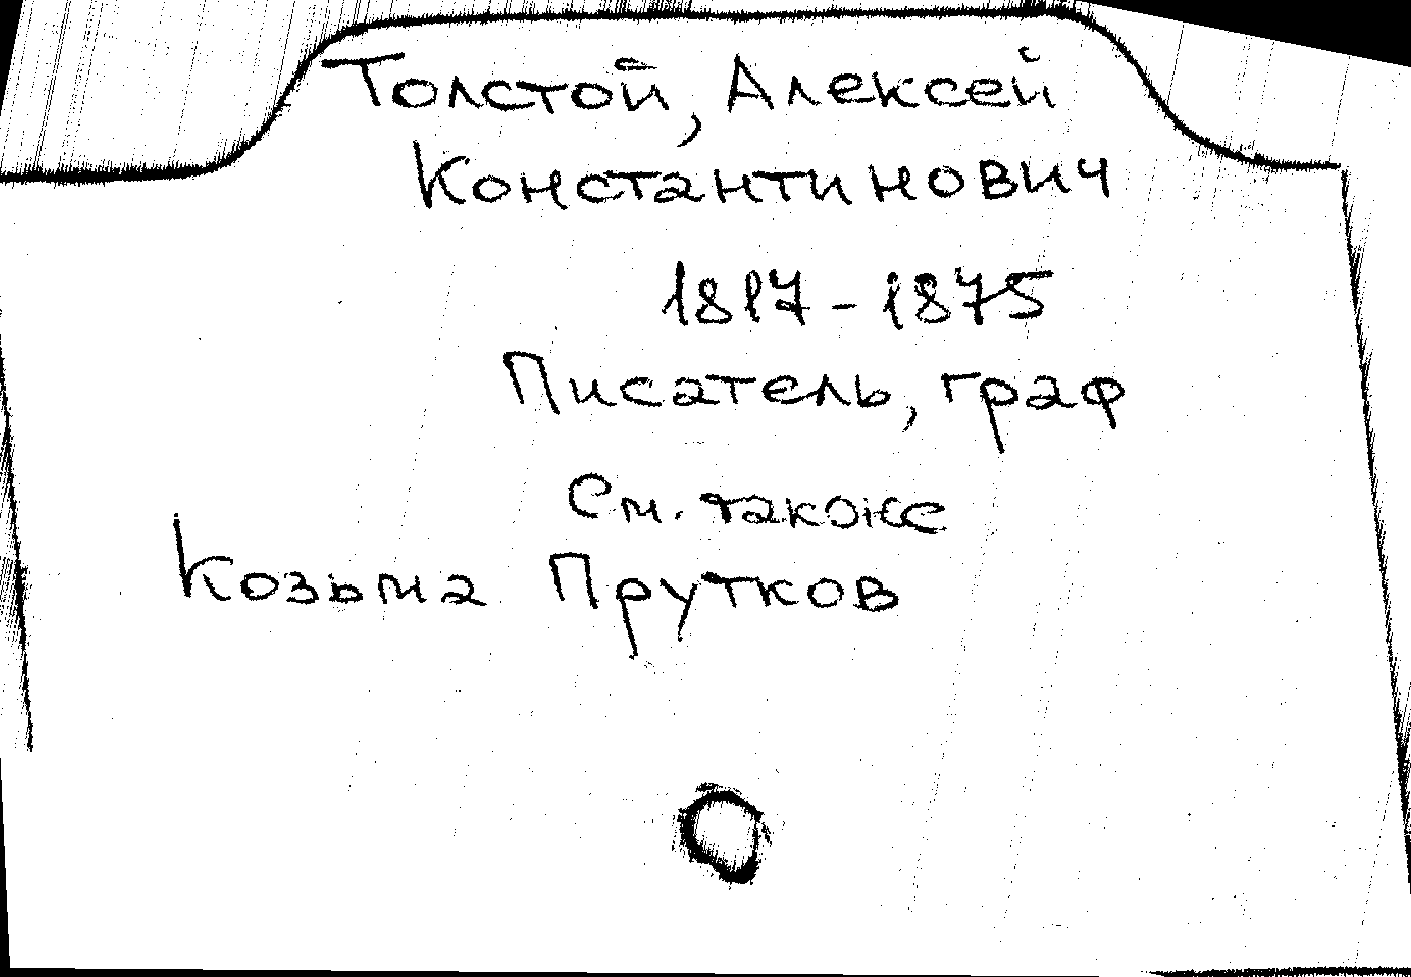 Толстой, Алексей
Константинович
1817 - 1875
Писатель, граф
См. также
Козьма Прутков